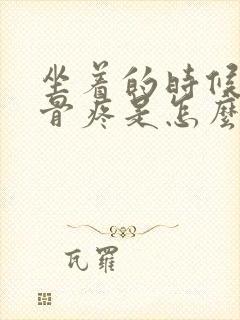 坐着的時候
骨疼是怎麽
瓦羅